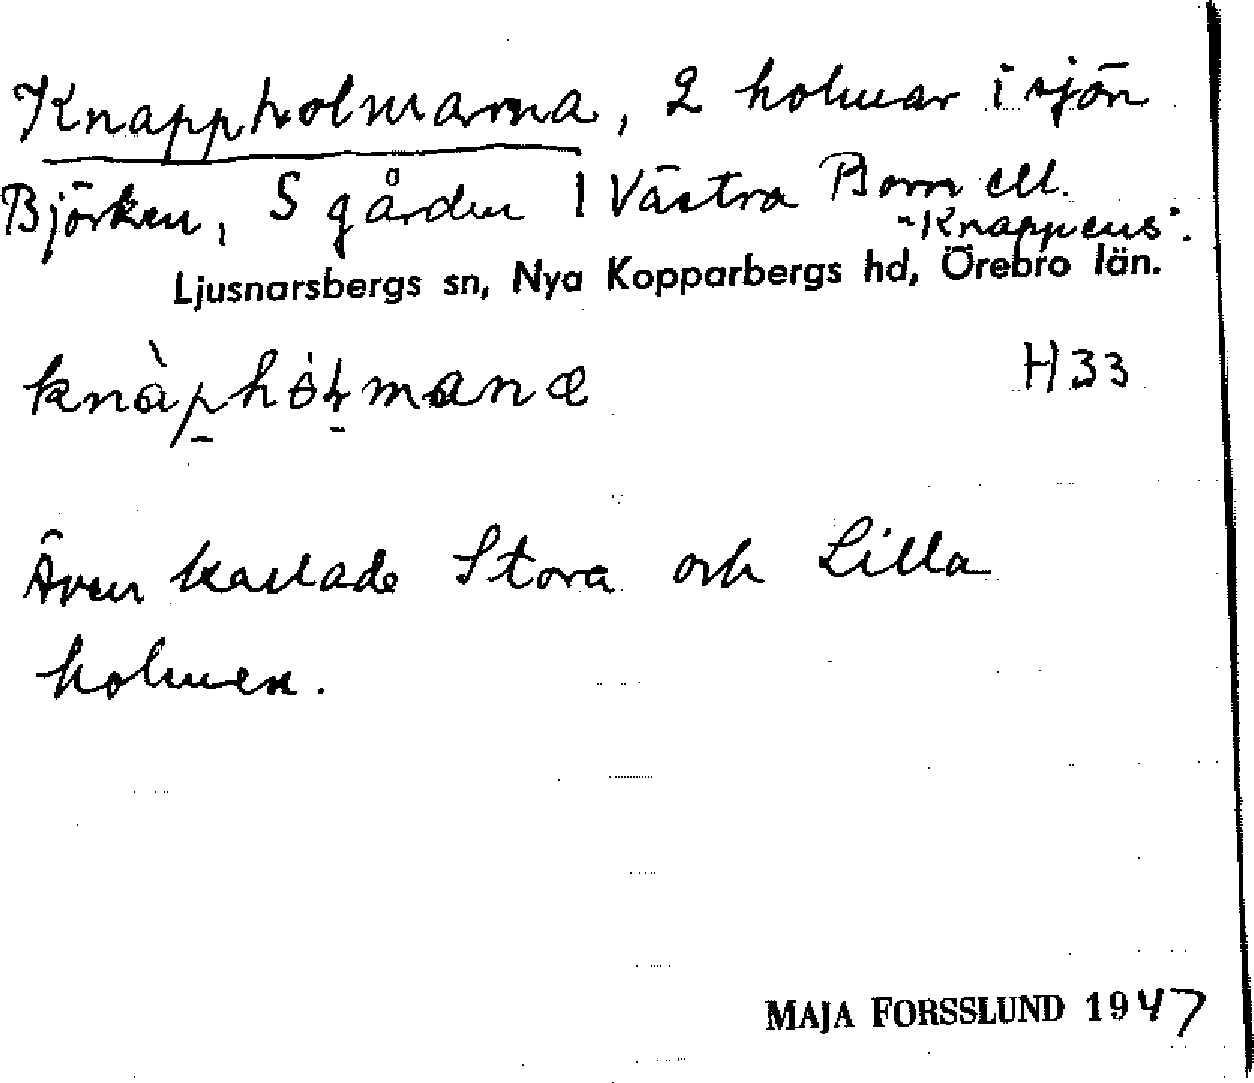 Knappholmarna, 2 holmar i sjön
Björken, S gården 1 Västra Born ell.
"Knappens".
Ljusnarsbergs sn, Nya Kopparbergs hd, Örebro län.
H33
Även kallade Stora och Lilla
holmen.
MAJA FORSSLUND 1947